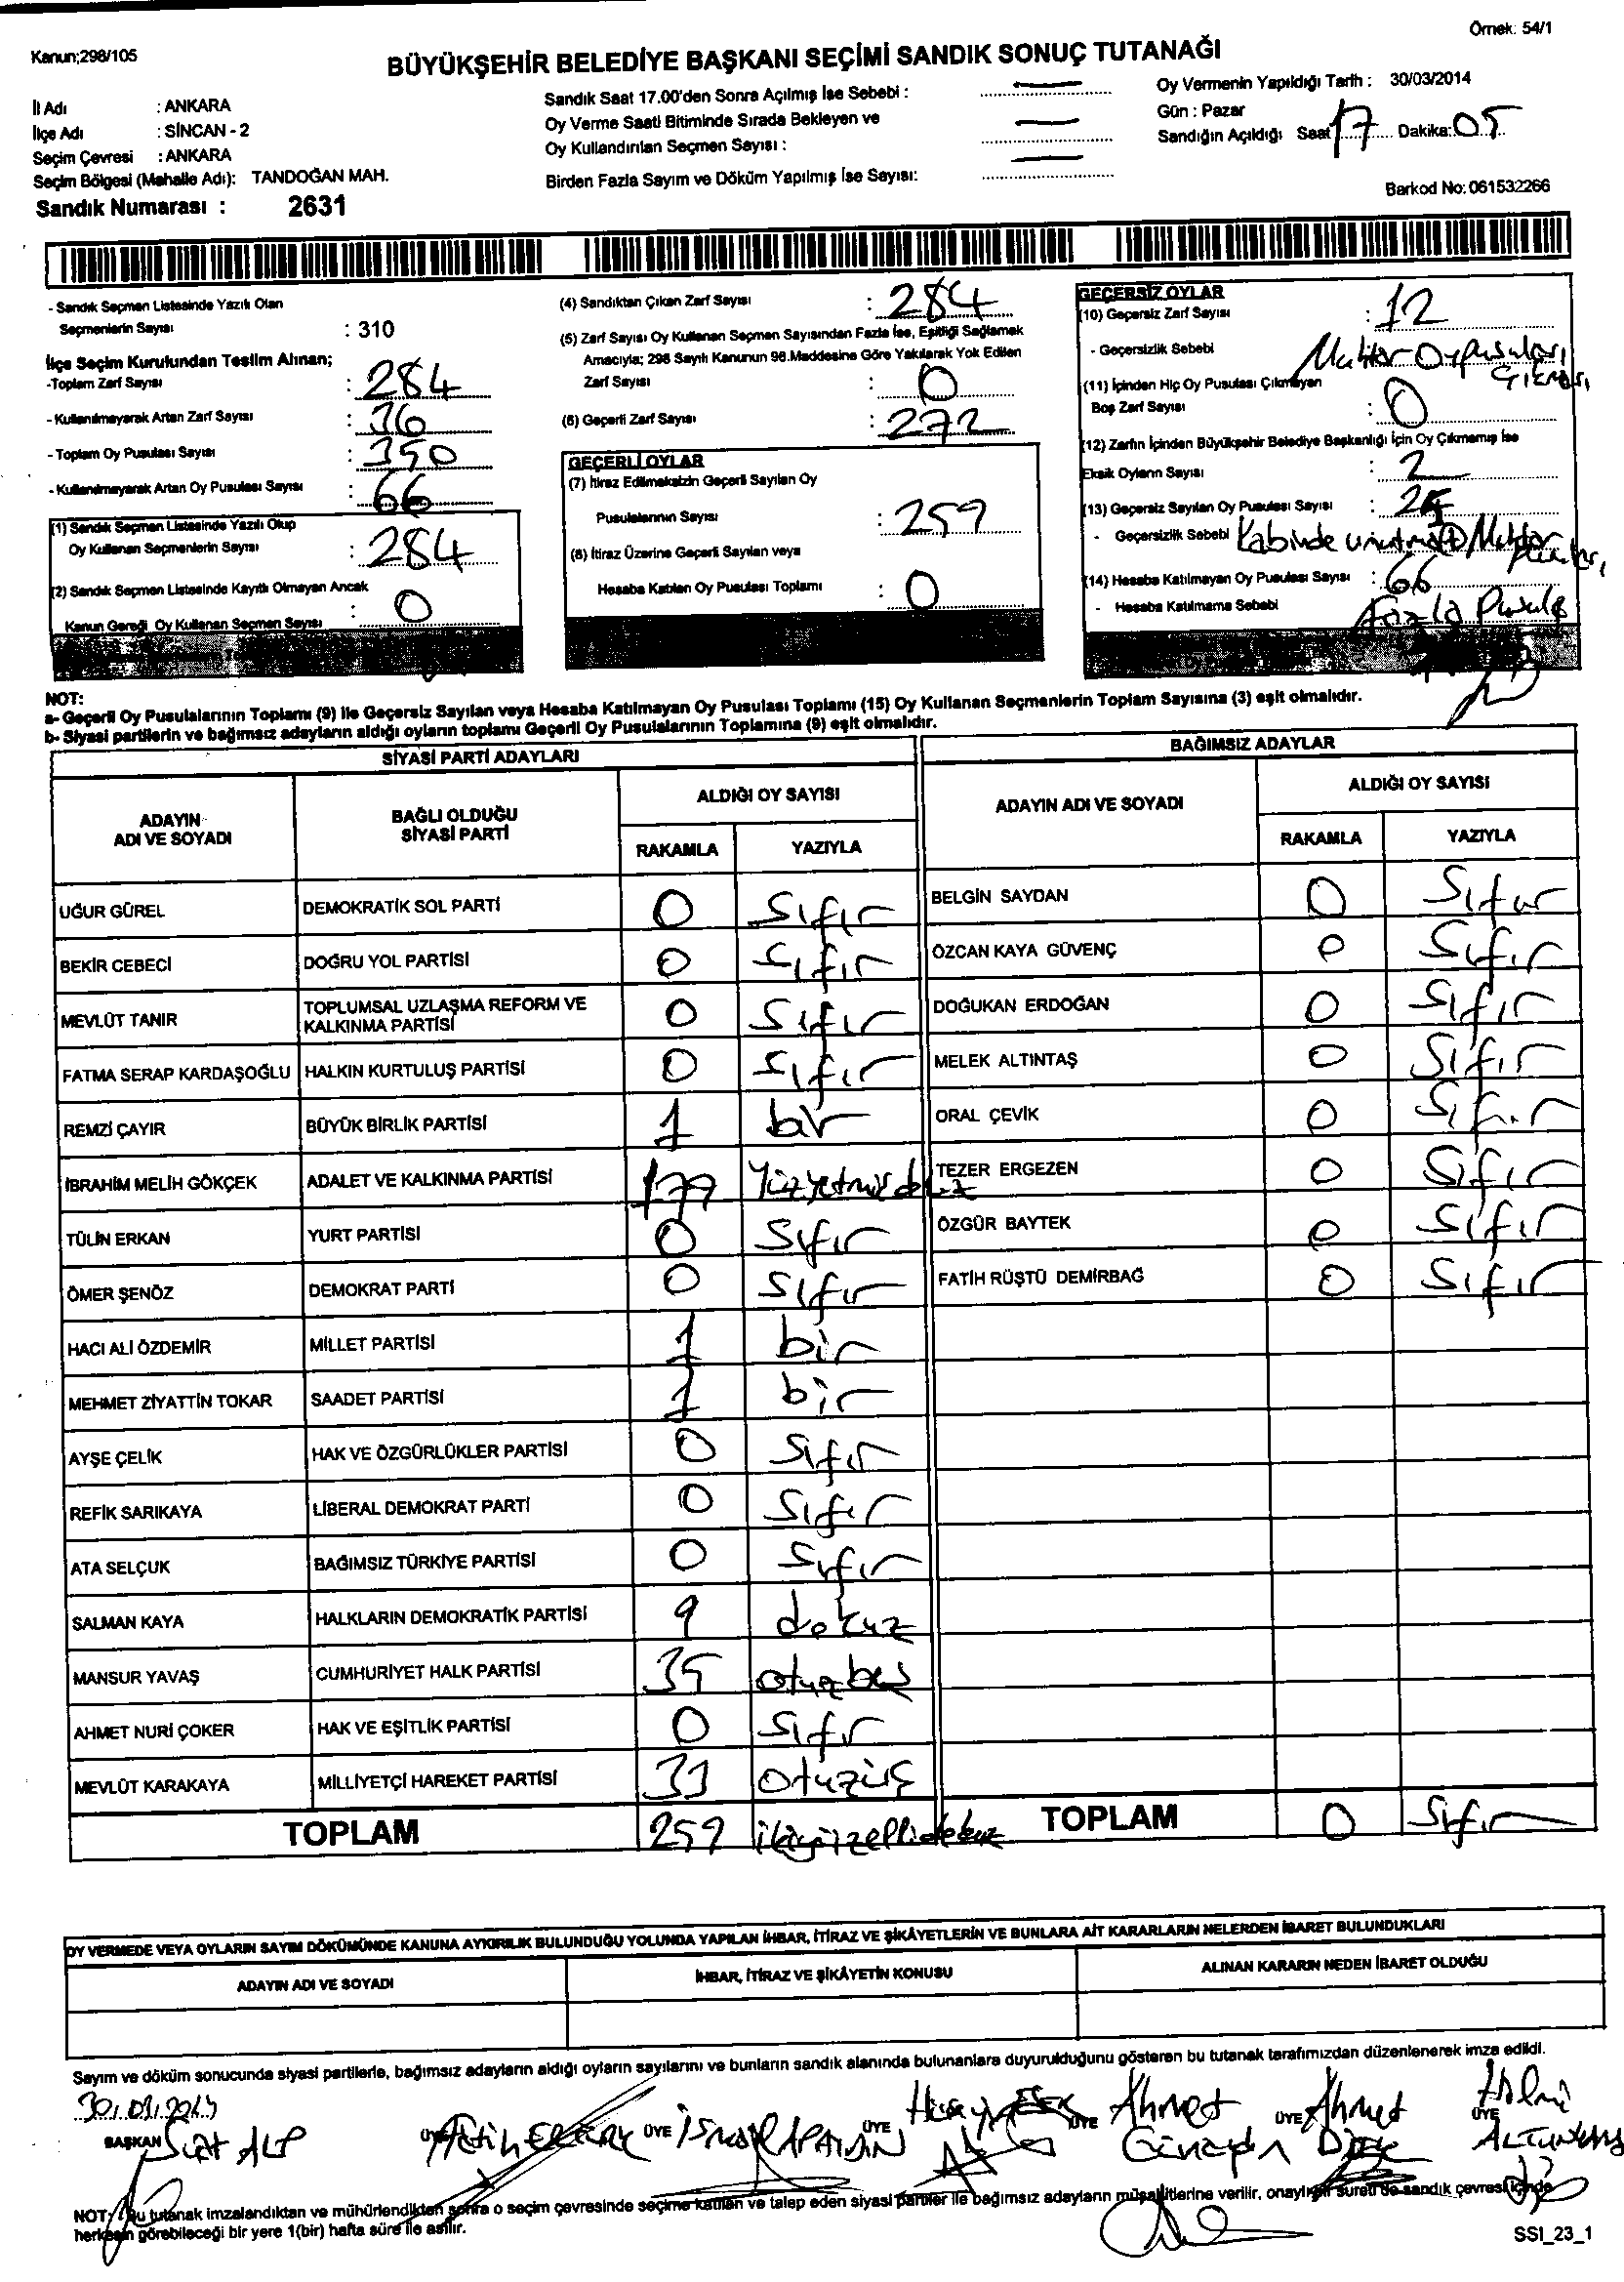 Kanun;298/105
Örnek: 54/1
BÜYÜKŞEHİR BELEDİYE BAŞKANI SEÇİMİ SANDIK SONUÇ TUTANAĞI
İl Adı : ANKARA
İlçe Adı : SİNCAN - 2
Seçim Çevresi : ANKARA
Seçim Bölgesi (Mahalle Adı): TANDOĞAN MAH.
Sandık Numarası : 2631
Sandık Saat 17.00'den Sonra Açılmış İse Sebebi :
Oy Verme Saati Bitiminde Sırada Bekleyen ve
Oy Kullandırılan Seçmen Sayısı :
Birden Fazla Sayım ve Döküm Yapılmış İse Sayısı:
Oy Vermenin Yapıldığı Tarih : 30/03/2014
Gün : Pazar
Sandığın Açıldığı Saat 17 Dakika: 05
Barkod No: 061532266
- Sandık Seçmen Listesinde Yazılı Olan
Seçmenlerin Sayısı : 310
İlçe Seçim Kurulundan Teslim Alınan;
-Toplam Zarf Sayısı : 284
- Kullanılmayarak Artan Zarf Sayısı : 36
- Toplam Oy Pusulası Sayısı : 350
- Kullanılmayarak Artan Oy Pusulası Sayısı : 66
(1) Sandık Seçmen Listesinde Yazılı Olup
Oy Kullanan Seçmenlerin Sayısı : 284
(2) Sandık Seçmen Listesinde Kayıtlı Olmayan Ancak
Kanun Gereği Oy Kullanan Seçmen Sayısı : 0
(4) Sandıktan Çıkan Zarf Sayısı : 284
(5) Zarf Sayısı Oy Kullanan Seçmen Sayısından Fazla İse, Eşitliği Sağlamak
Amacıyla; 298 Sayılı Kanunun 98.Maddesine Göre Yakılarak Yok Edilen
Zarf Sayısı : 0
(6) Geçerli Zarf Sayısı : 272
GEÇERLİ OYLAR
(7) İtiraz Edilmeksizin Geçerli Sayılan Oy
Pusulalarının Sayısı : 259
(8) İtiraz Üzerine Geçerli Sayılan veya
Hesaba Katılan Oy Pusulası Toplamı : 0
GEÇERSİZ OYLAR
(10) Geçersiz Zarf Sayısı : 12
- Geçersizlik Sebebi Muhtar Oypusuları çıkması
(11) İçinden Hiç Oy Pusulası Çıkmayan
Boş Zarf Sayısı : 0
(12) Zarfın İçinden Büyükşehir Belediye Başkanlığı İçin Oy Çıkmamış İse
Eksik Oyların Sayısı : 2
(13) Geçersiz Sayılan Oy Pusulası Sayısı :
- Geçersizlik Sebebi Kabinde unutma Muhtar
(14) Hesaba Katılmayan Oy Pusulası Sayısı : 66
- Hesaba Katılmama Sebebi Fazla Pusula
NOT:
a- Geçerli Oy Pusulalarının Toplamı (9) ile Geçersiz Sayılan veya Hesaba Katılmayan Oy Pusulası Toplamı (15) Oy Kullanan Seçmenlerin Toplam Sayısına (3) eşit olmalıdır.
b- Siyasi partilerin ve bağımsız adayların aldığı oyların toplamı Geçerli Oy Pusulalarının Toplamına (9) eşit olmalıdır.
SİYASİ PARTİ ADAYLARI
ADAYIN ADI VE SOYADI BAĞLI OLDUĞU SİYASİ PARTİ ALDIĞI OY SAYISI
RAKAMLA YAZIYLA
UĞUR GÜREL DEMOKRATİK SOL PARTİ 0 Sıfır
BEKİR CEBECİ DOĞRU YOL PARTİSİ 0 Sıfır
MEVLÜT TANIR TOPLUMSAL UZLAŞMA REFORM VE KALKINMA PARTİSİ 0 Sıfır
FATMA SERAP KARDAŞOĞLU HALKIN KURTULUŞ PARTİSİ 0 Sıfır
REMZİ ÇAYIR BÜYÜK BİRLİK PARTİSİ 1 bir
İBRAHİM MELİH GÖKÇEK ADALET VE KALKINMA PARTİSİ 179 Yüzyetmişdokuz
TÜLİN ERKAN YURT PARTİSİ 0 Sıfır
ÖMER ŞENÖZ DEMOKRAT PARTİ 0 Sıfır
HACI ALİ ÖZDEMİR MİLLET PARTİSİ 1 bir
MEHMET ZİYATTİN TOKAR SAADET PARTİSİ 1 bir
AYŞE ÇELİK HAK VE ÖZGÜRLÜKLER PARTİSİ 0 Sıfır
REFİK SARIKAYA LİBERAL DEMOKRAT PARTİ 0 Sıfır
ATA SELÇUK BAĞIMSIZ TÜRKİYE PARTİSİ 0 Sıfır
SALMAN KAYA HALKLARIN DEMOKRATİK PARTİSİ 9 dokuz
MANSUR YAVAŞ CUMHURİYET HALK PARTİSİ 35 otuzbeş
AHMET NURİ ÇOKER HAK VE EŞİTLİK PARTİSİ 0 Sıfır
MEVLÜT KARAKAYA MİLLİYETÇİ HAREKET PARTİSİ 33 otuzüç
TOPLAM 259 ikiyüzellidokuz
BAĞIMSIZ ADAYLAR
ADAYIN ADI VE SOYADI ALDIĞI OY SAYISI
RAKAMLA YAZIYLA
BELGİN SAYDAN 0 Sıfır
ÖZCAN KAYA GÜVENÇ 0 Sıfır
DOĞUKAN ERDOĞAN 0 Sıfır
MELEK ALTINTAŞ 0 Sıfır
ORAL ÇEVİK 0 Sıfır
TEZER ERGEZEN 0 Sıfır
ÖZGÜR BAYTEK 0 Sıfır
FATİH RÜŞTÜ DEMİRBAĞ 0 Sıfır
TOPLAM 0 Sıfır
OY VERMEDE VEYA OYLARIN SAYIM DÖKÜMÜNDE KANUNA AYKIRILIK BULUNDUĞU YOLUNDA YAPILAN İHBAR, İTİRAZ VE ŞİKÂYETLERİN VE BUNLARA AİT KARARLARIN NELERDEN İBARET BULUNDUKLARI
ADAYIN ADI VE SOYADI İHBAR, İTİRAZ VE ŞİKÂYETİN KONUSU ALINAN KARARIN NEDEN İBARET OLDUĞU
Sayım ve döküm sonucunda siyasi partilerle, bağımsız adayların aldığı oyların sayılarını ve bunların sandık alanında bulunanlara duyurulduğunu gösteren bu tutanak tarafımızdan düzenlenerek imza edildi.
BAŞKAN Suat ALP
ÜYE Fatih
ÜYE İSMAİL
ÜYE
ÜYE Ahmet Günaydın
ÜYE Ahmet
ÜYE
NOT: Bu tutanak imzalandıktan ve mühürlendikten sonra o seçim çevresinde seçime katılan ve talep eden siyasi partiler ile bağımsız adayların müşahitlerine verilir, onaylı bir sureti de sandık çevresi içinde
herkesin görebileceği bir yere 1(bir) hafta süre ile asılır.
SSI_23_1